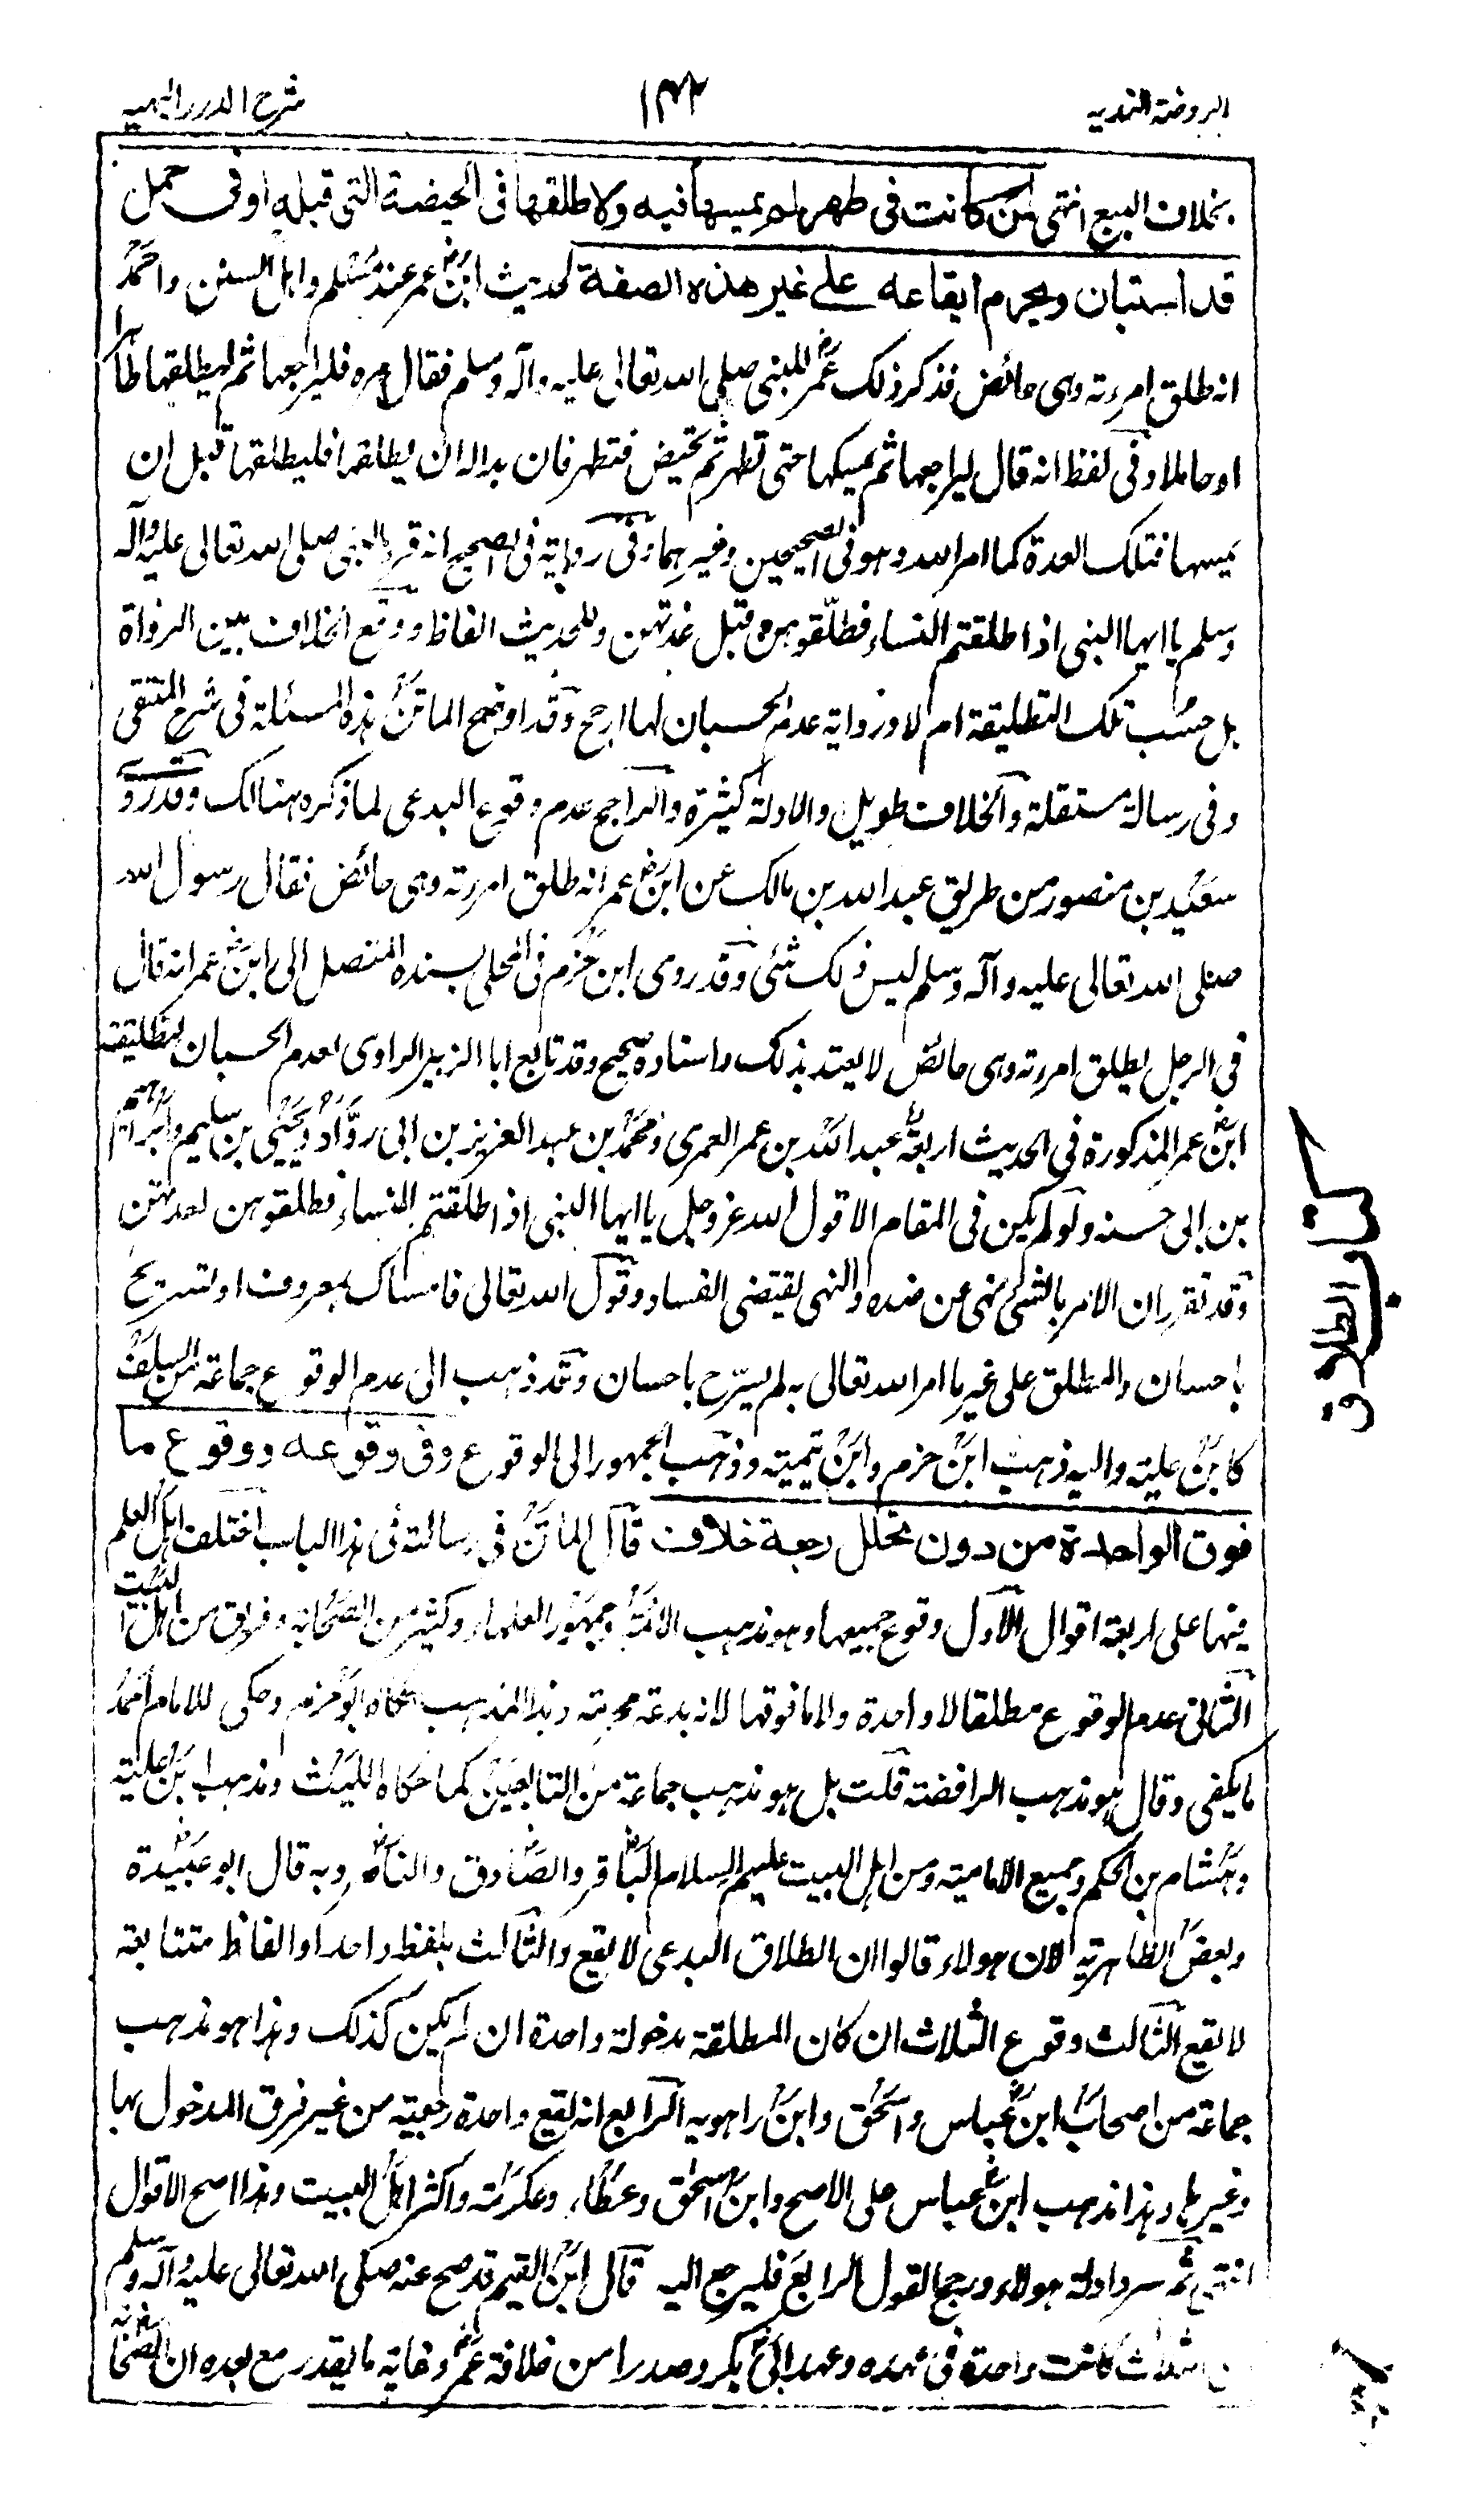 الروضة الندية
١٣٢
شرح الدرر البهية
بخلاف البيع انتهى لمن كانت فى طهر لم يمسها فيه ولا طلقها فى الحيضة التى قبله او فى حمل
قد استبان ويحرم ايقاعه على غير هذه الصفة لحديث ابن عمر عند مسلم واهل السنن واحمد
انه طلق امرءته وهى حائض فذكر ذلك عمر للنبى صلى الله تعالى عليه وآله وسلم فقال مره فليراجعها ثم ليطلقها طاهرا
او حاملا وفى لفظ انه قال ليراجعها ثم يمسكها حتى تطهر ثم تحيض فتطهر فان بدا له ان يطلقها فليطلقها قبل ان
يمسها فتلك العدة كما امر الله وهو فى الصحيحين وغيرهما وفى رواية فى الصحيح انه قرء النبى صلى الله تعالى عليه وآله
وسلم يا ايها النبى اذا طلقتم النساء فطلّقوهن فى قبل عدتهن وللحديث الفاظ ووقع الخلاف بين الرواة
هل حسب تلك التطليقة ام لا ورواية عدم الحسبان لها ارجح وقد اوضح الماتن هذه المسئلة فى شرح المنتقى
وفى رسالة مستقلة والخلاف طويل والادلة كثيرة والراجح عدم وقوع البدعى لما ذكره هنالك وقد روى
سعيد بن منصور من طريق عبد الله بن مالك عن ابن عمر انه طلق امرءته وهى حائض فقال رسول الله
صلى الله تعالى عليه وآله وسلم ليس ذلك شئ وقد روى ابن حزم فى المحلى بسنده المتصل الى ابن عمر انه قال
فى الرجل يطلق امرءته وهى حائض لا يعتد بذلك واسناده صحيح وقد تابع ابا الزبير الراوى لعدم الحسبان لتطليقة
ابن عمر المذكورة فى الحديث اربعة عبد الله بن عمر العمرى ومحمد بن عبد العزيز بن ابى روّاد ويحيى بن سليم وابراهيم
بن ابى حسنة ولو لم يكن فى المقام الا قول الله عز وجل يا ايها النبى اذا طلقتم النساء فطلقوهن لعدتهن
وقد تقرر ان الامر بالشئ نهى عن ضده والنهى يقتضى الفساد وقول الله تعالى فامساك بمعروف او تسريح
باحسان والمطلق على غير ما امر الله تعالى به لم يسرّح باحسان وقد ذهب الى عدم الوقوع جماعة من السلف
كابن علية واليه ذهب ابن حزم وابن تيمية وذهب الجمهور الى الوقوع وفى وقوعه ووقوع ما
فوق الواحدة من دون تخلل رجعة خلاف قال الماتن فى رسالته فى هذا الباب اختلف اهل العلم
فيها على اربعة اقوال الاول وقوع جميعها وهو مذهب الائمة وجمهور العلماء وكثير من الصحابة وفريق من اهل البيت
الثانى عدم الوقوع مطلقا لا واحدة ولا ما فوقها لانه بدعة محرمة وهذا المذهب حكاه ابو حزم وحكى للامام احمد
ما يكفى وقال هو مذهب الرافضة قلت بل هو مذهب جماعة من التابعين كما حكاه الليث ومذهب ابن علية
وهشام بن الحكم وجميع الامامية ومن اهل البيت عليهم السلام الباقر والصادق والناصر وبه قال ابو عبيدة
وبعض الظاهرية لان هولاء قالوا ان الطلاق البدعى لا يقع والثالث بلفظ واحد او الفاظ متتابعة
لا يقع الثالث وقوع الثلاث ان كان المطلقة مدخولة واحدة ان لم يكن كذلك وهذا هو مذهب
جماعة من اصحاب ابن عباس واسحق وابن راهويه الرابع انه يقع واحدة رجعية من غير فرق المدخول بها
وغيرها وهذا مذهب ابن عباس على الاصح وابن اسحق وعطاء وعكرمة واكثر اهل البيت وهذا اصح الاقوال
انتهى ثم سرد ادلة هولاء ورجح القول الرابع فليرجع اليه قال ابن القيم قد صح عنه صلى الله تعالى عليه وآله وسلم
ان الثلاث كانت واحدة فى عهده وعهد ابى بكر وصدرا من خلافة عمر وغاية ما يقدر مع بعده ان الصحابة
كتاب الطلاق